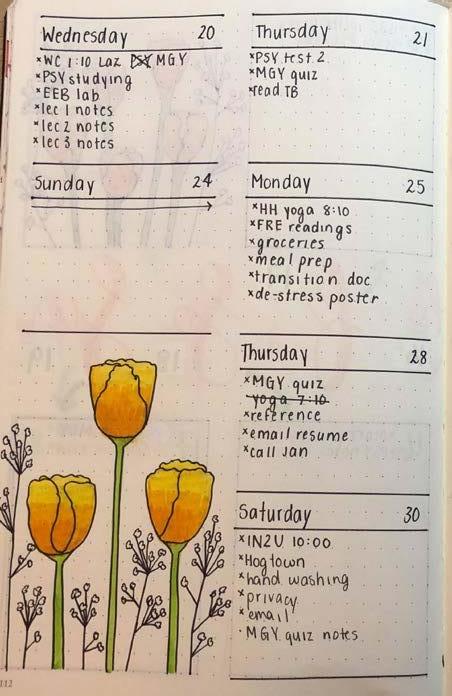 Wednesday 20
×WC 1:10 Laz PSY MGY
×PSY studying
×EEB lab
×lec 1 notes
×lec 2 notes
×lec 3 notes
Thursday 21
×PSY test 2
×MGY quiz
×read TB
Sunday 24
Monday 25
×HH yoga 8:10
×FRE readings
×groceries
×meal prep
×transition doc
×de-stress poster
Thursday 28
×MGY quiz
yoga 7:10
×reference
×email resume
×call Jan
Saturday 30
×IN2U 10:00
×Hogtown
×hand washing
×privacy
×email
· MGY quiz notes
112